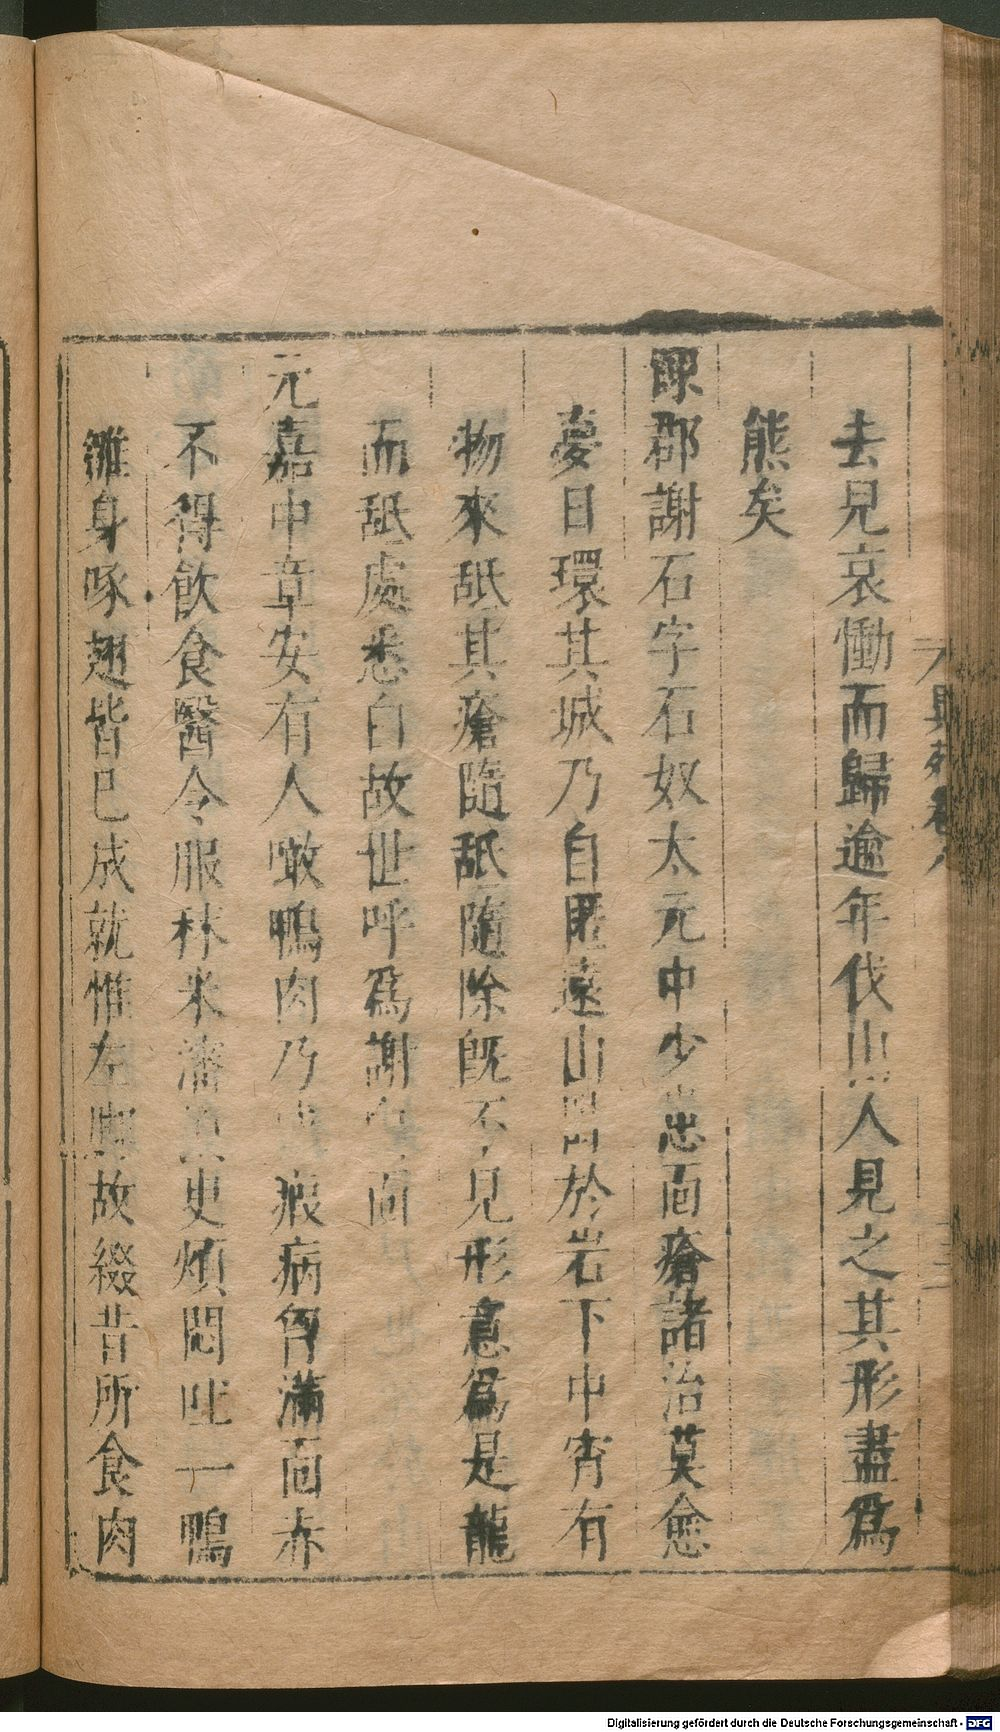 去見哀慟而歸逾年伐山人見之其形盡爲
熊矣
陳郡謝石字石奴太元中少患面瘡諸治莫愈
夢日環其城乃自匿遠山卧於岩下中宵有
物來舐其瘡隨舐隨除既不見形意爲是龍
而舐處悉白故世呼爲謝白面
元嘉中章安有人噉鴨肉乃成瘕病胷滿面赤
不得飲食醫令服秫米瀋須臾煩悶吐一鴨
雛身啄翅皆已成就惟左脚故綴昔所食肉
異苑卷八
Digitalisierung gefördert durch die Deutsche Forschungsgemeinschaft - DFG